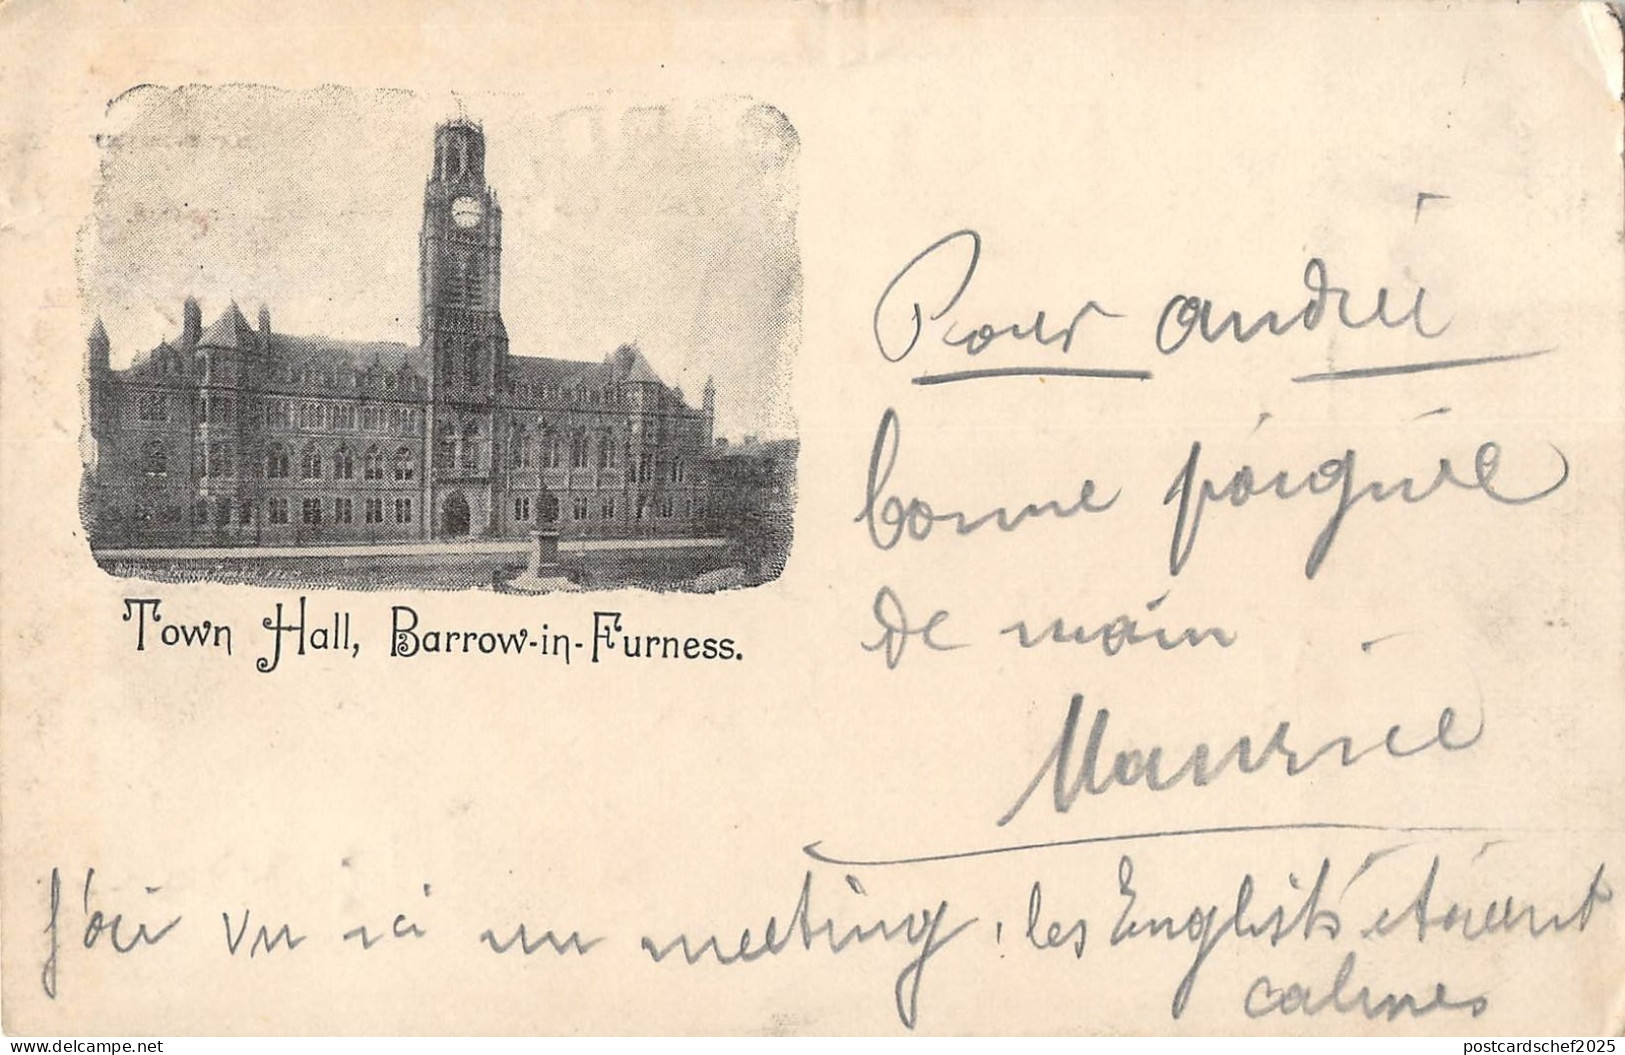 Town Hall, Barrow-in-Furness.
Pour andrée
bonne poignée
de main
Maurice
j'ai vu ici un meeting, les English étaient
calmes
postcardschef2025